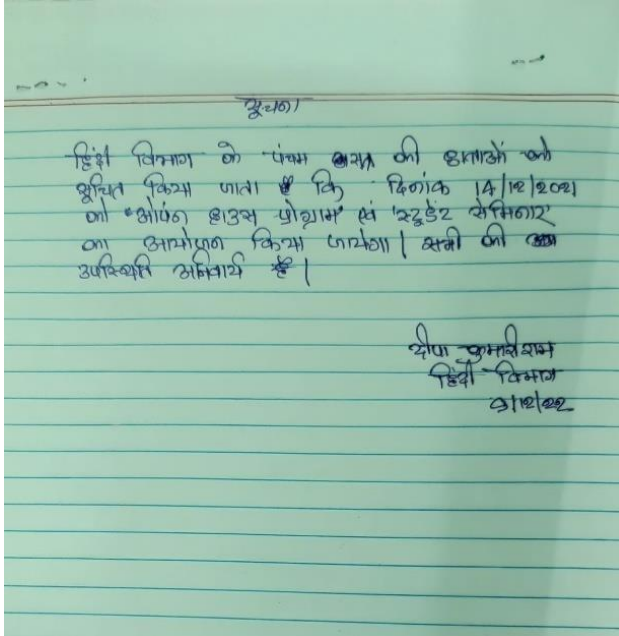 सूचना
हिंदी विभाग के पंचम सत्र की छात्राओं को
सूचित किया जाता है कि दिनांक 14/12/2021
को "ओपेन हाउस प्रोग्राम" एवं 'स्टूडेंट सेमिनार'
का आयोजन किया जायेगा | सभी की
उपस्थिति अनिवार्य है |
दीपा कुमारी राम
हिंदी विभाग
9/12/22